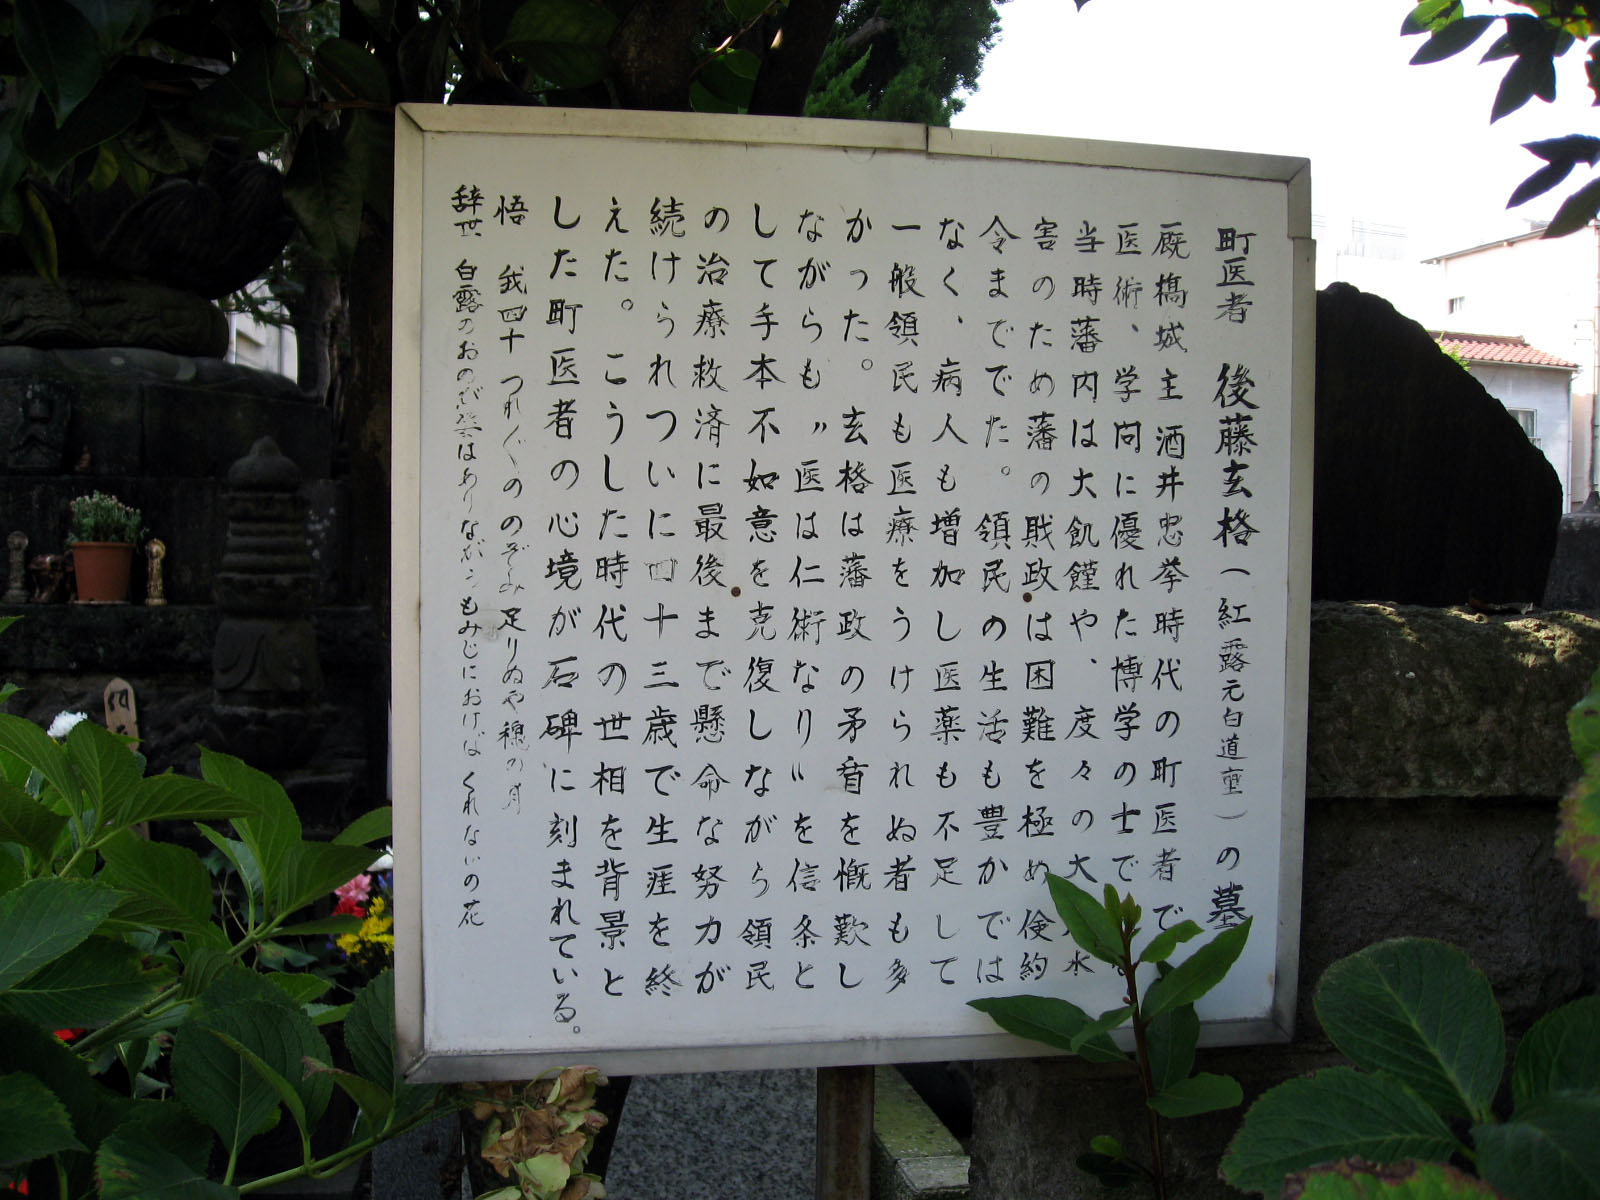 町医者 後藤玄格(紅露元白道重)の墓
厩橋城主酒井忠挙時代の町医者で
医術、学問に優れた博学の士で
当時藩内は大飢饉や、度々の大水
害のため藩の財政は困難を極め倹約
令まででた。領民の生活も豊かでは
なく、病人も増加し医薬も不足して
一般領民も医療をうけられぬ者も多
かった。玄格は藩政の矛盾を慨歎し
ながらも〃医は仁術なり〃を信条と
して手本不如意を克復しながら領民
の治療救済に最後まで懸命な努力が
続けられついに四十三歳で生涯を終
えた。こうした時代の世相を背景と
した町医者の心境が石碑に刻まれている。
悟 我四十 つれ〲ののぞみ足りぬや穐の月
辞世 白露のおのが姿はありながらもみじにおけばくれないの花